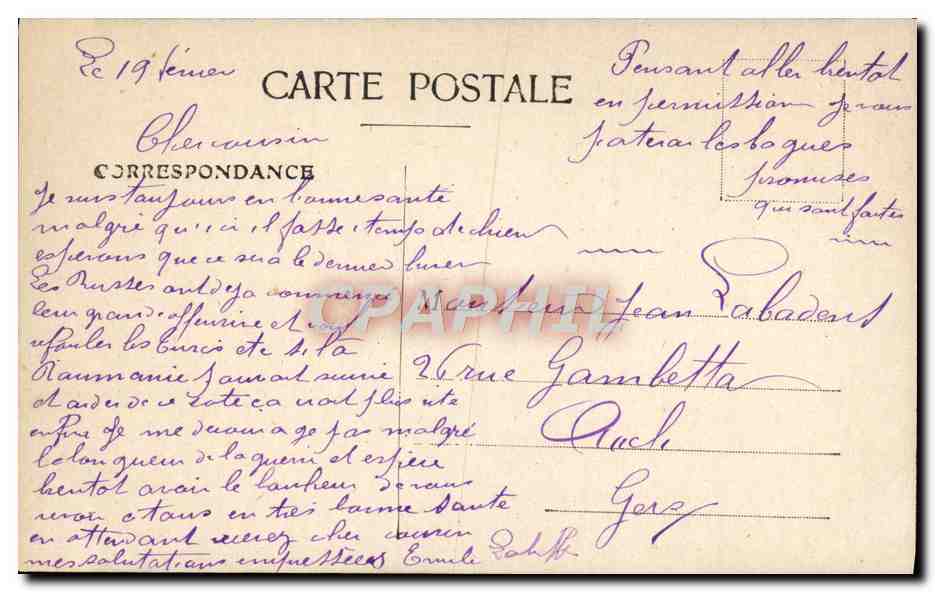 Le 19 février
CARTE POSTALE
Cher cousin
CORRESPONDANCE
Je suis toujours en bonne santé
malgré qu'ici il fasse temps de chien
esperons que ce sera le dernier hiver
Les Russes ont deja commencé
leur grande offensive et vont
refouler les turcs et si la
Roumanie pouvait suivre
et aider de ce coté ça irait plus vite
enfin Je me decourage pas malgré
la longueur de la guerre et espère
bientot avoir le bonheur de vous
revoir etans en très bonne santé
en attendant recevez cher cousin
mes salutations empressées Emile
Pensant aller bientot
en permission je vous
porterai les bagues
promises
qui sont faites
Monsieur Jean Labadens
26 rue Gambetta
Auch
Gers
CPAPHIL